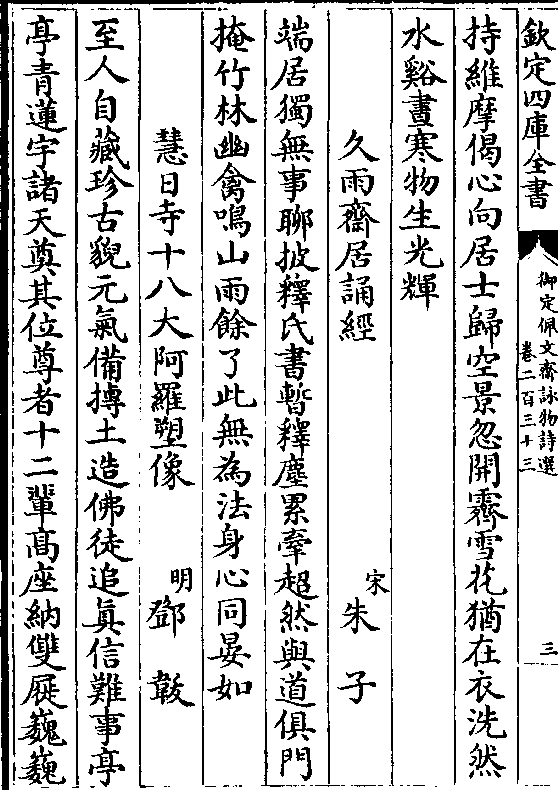 欽定四庫全書
御定佩文齋詠物詩選
卷二百三十三
三
持維摩偈心向居士歸空景忽開霽雪花猶在衣洗然
水谿晝寒物生光輝
久雨齋居誦經
宋朱子
端居獨無事聊披釋氏書暫釋塵累牽超然與道俱門
掩竹林幽禽鳴山雨餘了此無為法身心同晏如
慧日寺十八大阿羅塑像
明鄧韍
至人自藏珍古貎元氣備摶土造佛徒追真信難事亭
亭青蓮宇諸天奠其位尊者十二輩髙座納雙屣巍巍